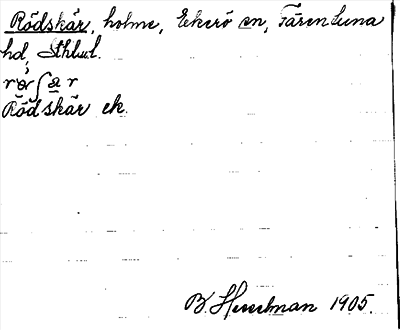 Rödskär, holme, Ekerö sn, Färentuna
hd, Sthlm l.
Rödskär ek.
B. Hesselman 1905.